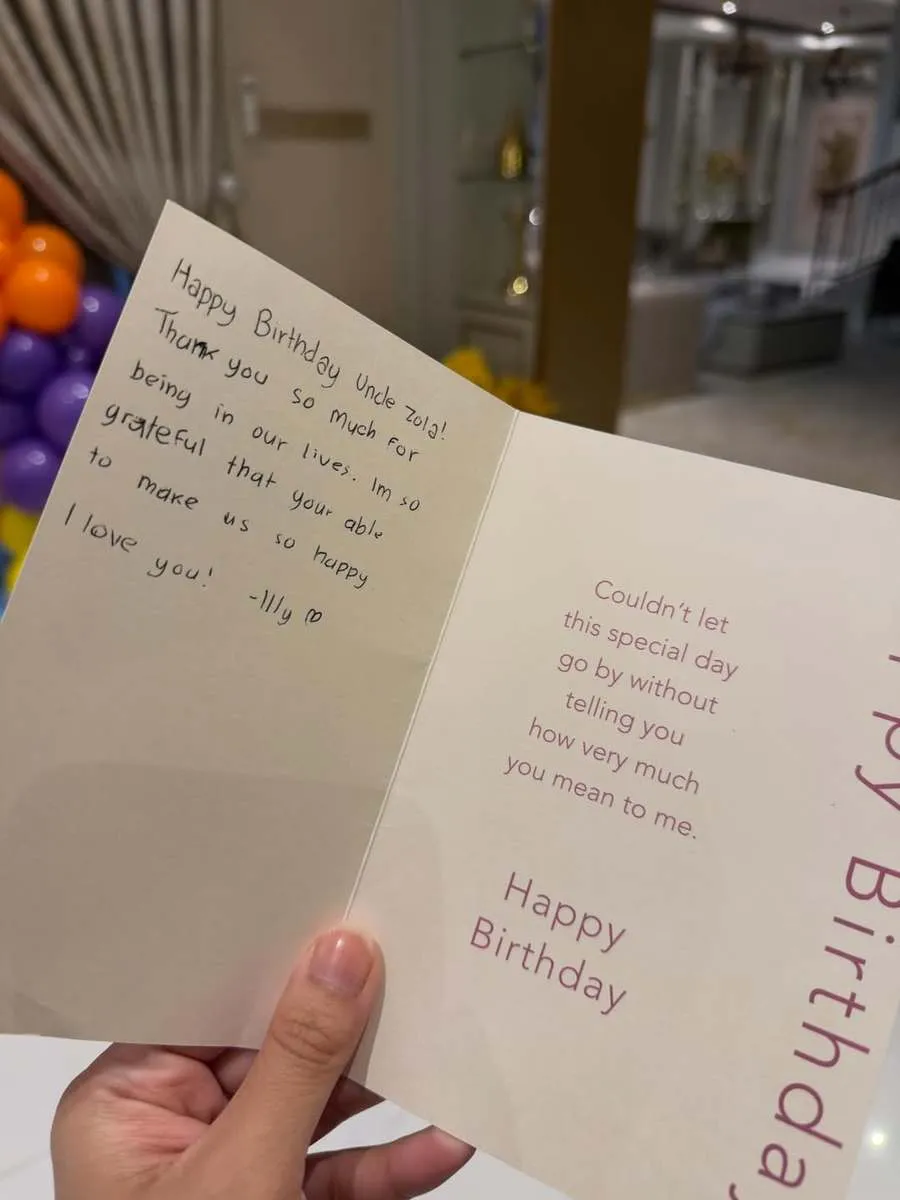 Happy Birthday Uncle Zola!
Thank you so much for
being in our lives. Im so
grateful that your able
to make us so happy
I love you! -Illy ♡
Couldn't let
this special day
go by without
telling you
how very much
you mean to me.
Happy
Birthday
ppy Birthday